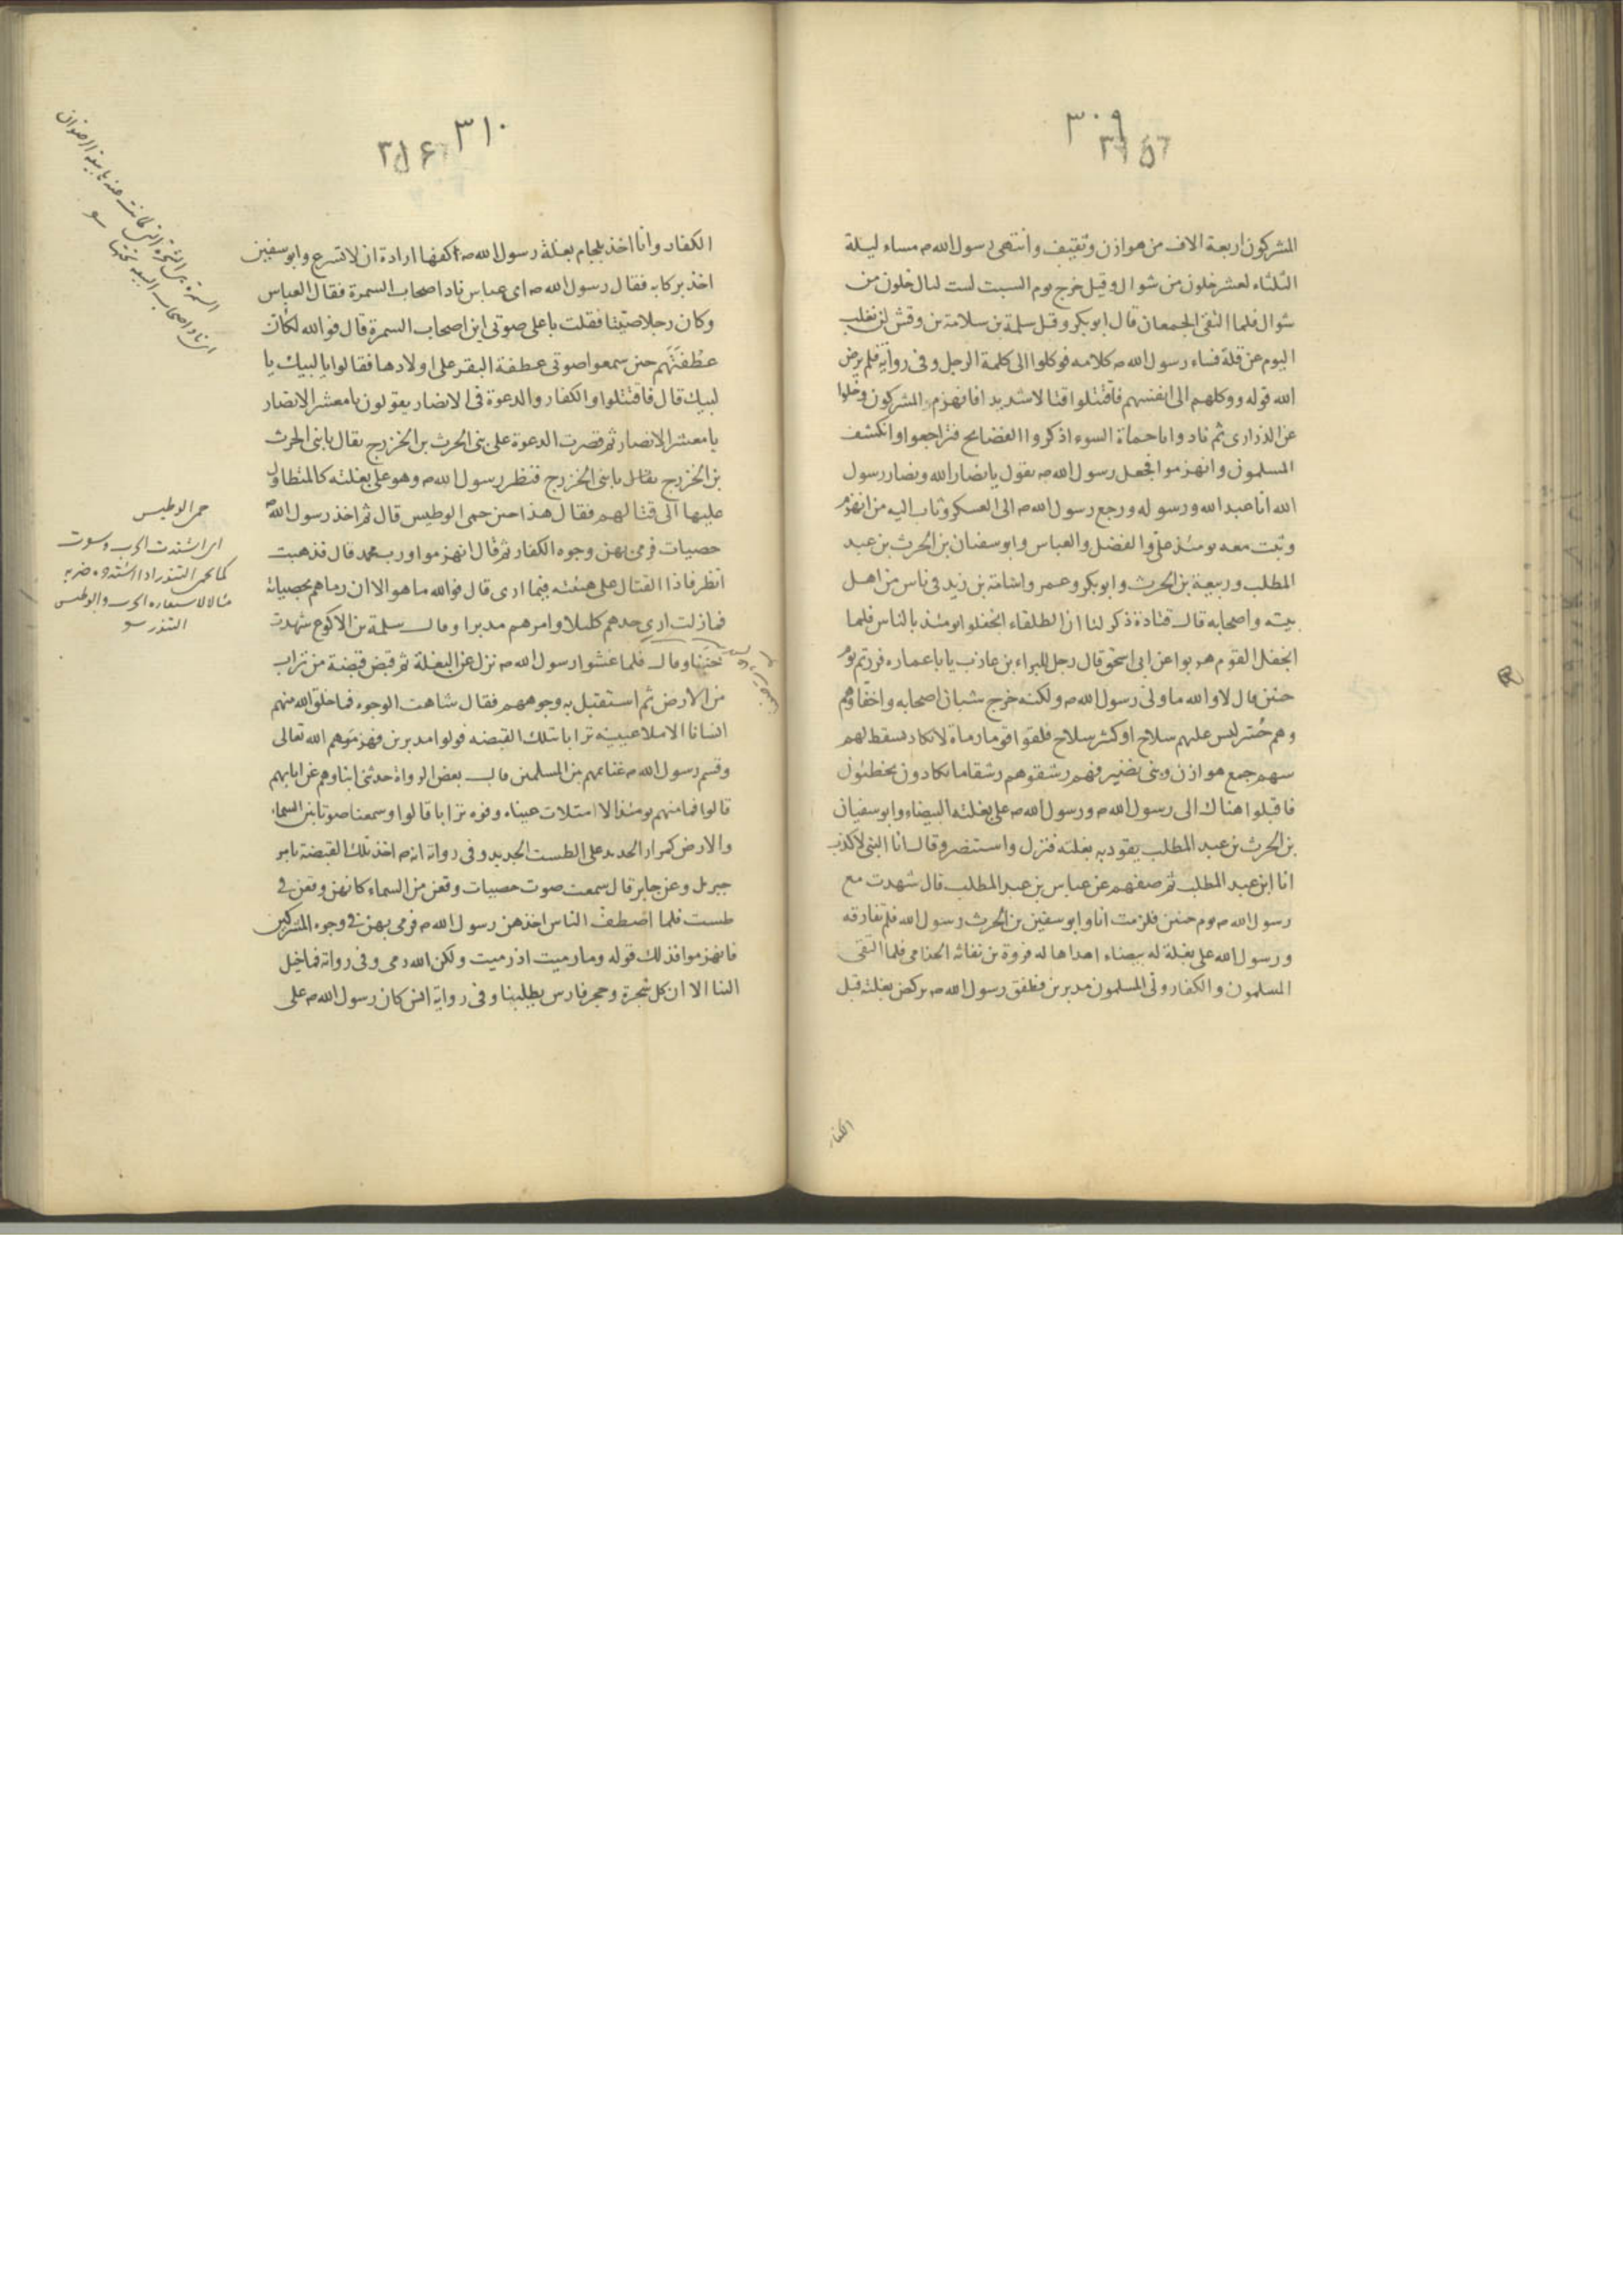 ٣٠٩
المشركون اربعة الاف من هوازن وثقيف وانتهى رسول الله ص مساء ليلة
الثلثاء لعشر خلون من شوال وقيل خرج يوم السبت لست ليال خلون من
شوال فلما التقى الجمعان قال ابوبكر وقيل سلمة بن سلامة بن وقش لن نغلب
اليوم عن قلة فساء رسول الله ص كلامه فوكلوا الى كلمة الرجل وفى رواية فلم يرض
الله قوله ووكلهم الى انفسهم فاقتتلوا قتالا شديدا فانهزم المشركون وخلوا
عن الذرارى ثم نادوا يا حماة السوء اذكروا الفضايح فتراجعوا وانكشف
المسلمون وانهزموا فجعل رسول الله ص يقول يا نصار الله ونصار رسول
الله انا عبد الله ورسوله ورجع رسول الله ص الى العسكر وثاب اليه من انهزم
وثبت معه يومئذ على والفضل والعباس وابو سفيان بن الحرث بن عبد
المطلب وربيعة بن الحرث وابوبكر وعمر واسامة بن زيد فى ناس من اهل
بيته واصحابه قال قتادة ذكر لنا ان الطلقاء انجفلوا يومئذ بالناس فلما
انجفل القوم هربوا عن ابى اسحق قال رجل للبراء بن عازب يا با عماره فررتم يوم
حنين قال لا والله ما ولى رسول الله ص ولكنه خرج شبان اصحابه واخفاوهم
وهم حسر ليس عليهم سلاح او كثير سلاح فلقوا قوما رماة لا يكاد يسقط لهم
سهم جمع هوازن وبنى نضير فهم رشقوهم رشقا ما يكادون يخطئون
فاقبلوا هناك الى رسول الله ص ورسول الله ص على بغلته البيضاء وابو سفيان
بن الحرث بن عبد المطلب يقود به بغلته فنزل واستنصر وقال انا النبى لا كذب
انا ابن عبد المطلب ثم صفهم عن عباس بن عبد المطلب قال شهدت مع
رسول الله ص يوم حنين فلزمت انا وابو سفين بن الحرث رسول الله فلم نفارقه
ورسول الله على بغلة له بيضاء اهداها له فروة بن نفاثه الجذامى فلما التقى
المسلمون والكفار ولى المسلمون مدبرين فطفق رسول الله ص يركض بغلته قبل
الكفار
٣١٠
٢٥٦
الكفار وانا اخذ بلجام بغلة رسول الله ص اكفها ارادة ان لا تسرع وابو سفين
اخذ بركابه فقال رسول الله ص اى عباس ناد اصحاب السمرة فقال العباس
وكان رجلا صيتا فقلت باعلى صوتى اين اصحاب السمرة قال فوالله لكأن
عطفتهم حين سمعوا صوتى عطفة البقر على اولادها فقالوا يا لبيك يا
لبيك قال فاقتتلوا والكفار والدعوة فى الانصار يقولون يا معشر الانصار
يا معشر الانصار ثم قصرت الدعوة على بنى الحرث بن الخزرج يقال يا بنى الحرث
بن الخزرج يقال يا بنى الخزرج فنظر رسول الله ص وهو على بغلته كالمتطاول
عليها الى قتالهم فقال هذا حين حمى الوطيس قال ثم اخذ رسول الله ص
حصيات فرمى بهن وجوه الكفار ثم قال انهزموا ورب محمد قال فذهبت
انظر فاذا القتال على هيئته فيما ارى قال فوالله ما هو الا ان رماهم بحصياته
فما زلت ارى حدهم كليلا وامرهم مدبرا وقال سلمة بن الاكوع شهدت
حنينا وقال فلما غشوا رسول الله ص نزل عن البغلة ثم قبض قبضة من تراب
من الارض ثم استقبل به وجوههم فقال شاهت الوجوه فما خلق الله منهم
انسانا الا ملا عينيه ترابا بتلك القبضه فولوا مدبرين فهزموهم الله تعالى
وقسم رسول الله ص غنائمهم بين المسلمين قال بعض الرواة حدثنى ابناوهم عن ابايهم
قالوا فما منهم يومئذ الا امتلات عيناه وفوه ترابا قالوا وسمعنا صوتا بين السماء
والارض كمرار الحديد على الطست الجديد وفى رواية انه ص اخذ تلك القبضة بامر
جبريل وعن جابر قال سمعت صوت حصيات وقعن من السماء كانهن وقعن فى
طست فلما اصطف الناس اخذهن رسول الله ص فرمى بهن فى وجوه المشركين
فانهزموا فذلك قوله وما رميت اذ رميت ولكن الله رمى وفى رواية فما خيل
الينا الا ان كل شجرة وحجر فارس يطلبنا وفى رواية انس كان رسول الله ص على
حمى الوطيس
اى اشتدت الحرب
كما يحمى التنور اذا اشتد وضربه
مثالا لاستعاره الحرب والوطيس
التنور